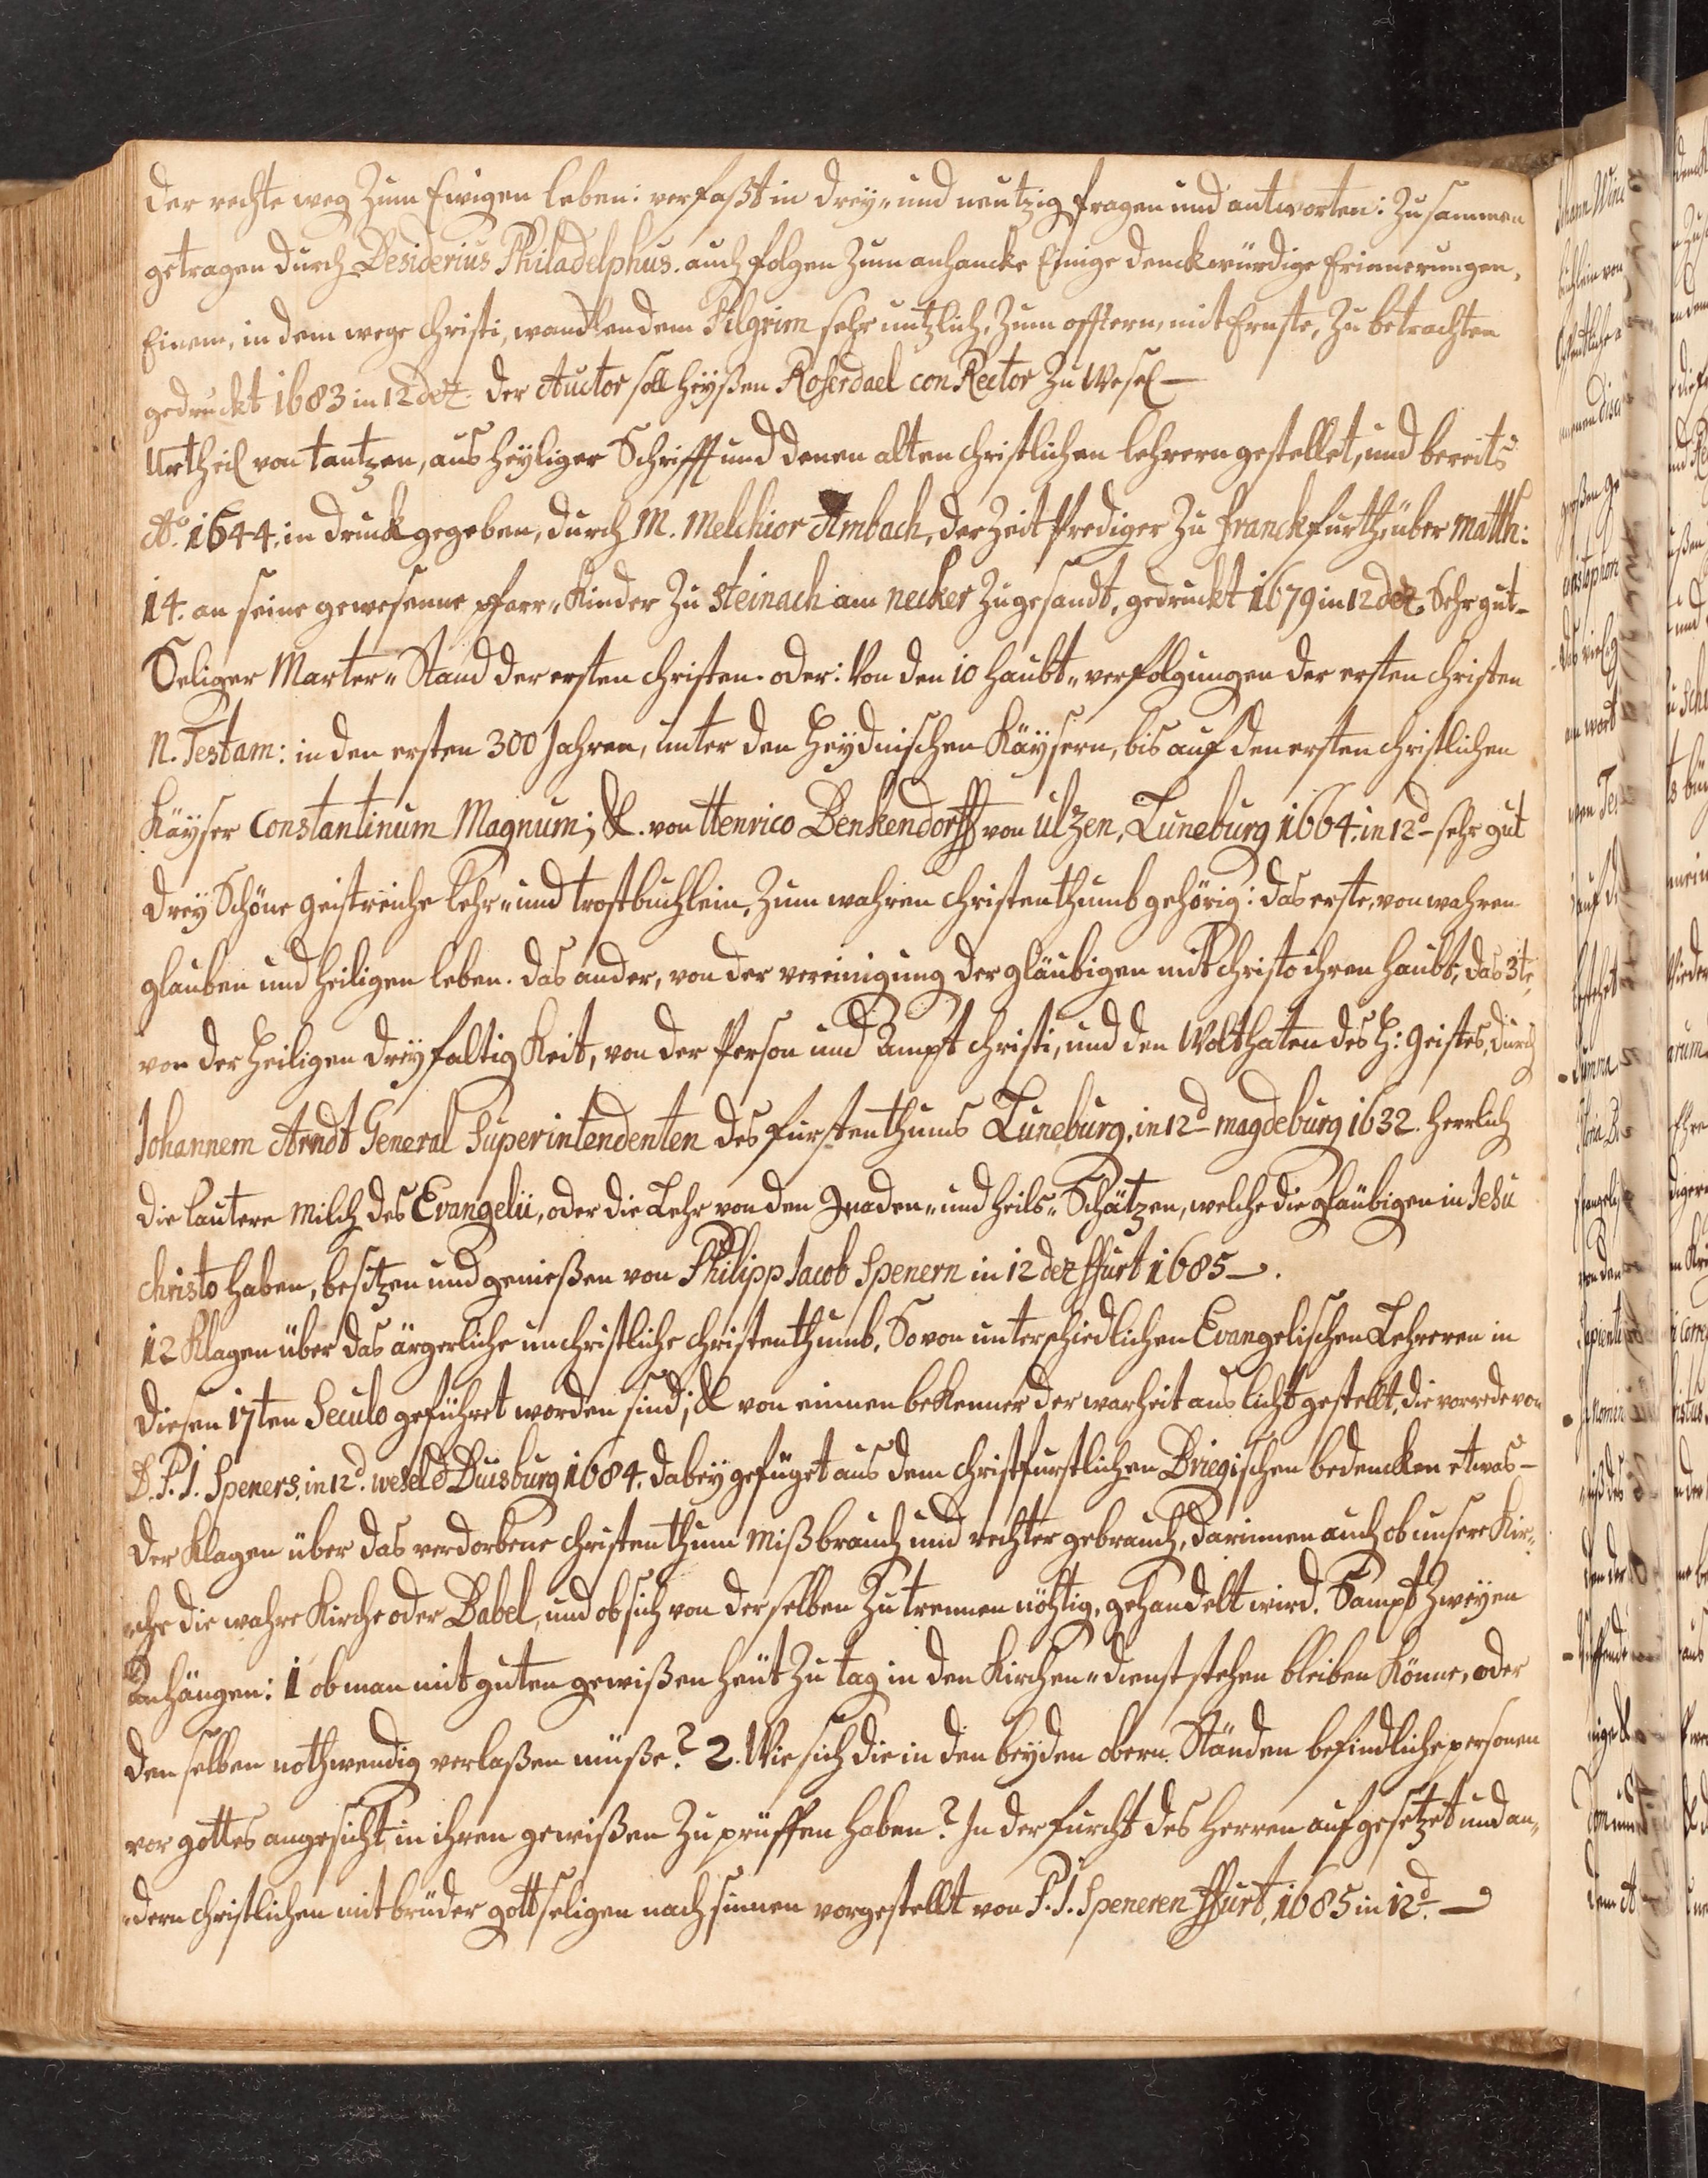 der rechte weg Zum Ewigen leben: verfaßt in drey- und neutzig fragen und antworten: Zusammen
getragen durch Desiderius Philadelphus. auch folgen Zum anhancke Einige denckwürdige Erinnerungen,
Einem, in dem wege christi, wandlendem Pilgrim sehr nutzlich, Zum offtern, mit Ernste, Zu betrachten
gedruckt 1683 in 12 dez. der Auctor soll heyßen Roserdael con Rector Zu Wesel –
Urtheil von tantzen, aus heyliger Schrifft und denen alten christlichen lehrern gestellet, und bereits
Ao. 1644. in druck gegeben, durch M. Melchior Ambach, der Zeit Prediger Zu franckfurth, über Matth:
14. an seine gewesene pfarr-Kinder Zu steinach am necker Zugesandt, gedruckt 1679 in 12 dez. Sehr gut –
Seliger Marter-Stand der ersten christen. oder: Von den 10 haubt-verfolgungen der ersten christen
N. Testam: in den ersten 300 Jahren, unter den heydnischen Käysern, bis auf den ersten christlichen
Käyser Constantinum Magnum; &. von Henrico Benkendorff von Ulzen, Luneburg 1664. in 12d – sehr gut
drey Schöne geistreiche lehr- und trostbuchlein, Zum wahren christenthumb gehörig: das erste, von wahren
glauben und heiligen leben. das ander, von der vereinigung der gläubigen mit christo ihren haubt, das 3te,
von der heiligen dreyfaltigKeit, von der Person und Ampt christi, und den Wolthaten des H: geistes, durch
Johannem Arndt General Superintendenten des furstenthums Luneburg, in 12d – magdeburg 1632. herrlich
die lautere Milch des Evangelii, oder die Lehr von den Gnaden- und heils-Schätzen, welche die gläubigen in Jesu
christo haben, besitzen und genießen von Philipp Jacob Spenern in 12 dez ffurt 1685 –.
12 Klagen über das ärgerliche unchristliche christenthumb, So von unterschiedlichen Evangelischen Lehreren in
diesen 17ten Seculo geführet worden sind; & von einnem bekenner der warheit ans licht gestellt, die vorrede von
D. P. J. Speners, in 12d. wesel & Duisburg 1684. dabey gefüget aus dem christfurstlichen Briegischen bedencken etwas –
der Klagen über das verdorbene christenthum mißbrauch und rechter gebrauch, darinnen auch ob unsere Kir-
-che die wahre Kirche oder Babel, und ob sich von derselben Zu trennen nöhtig, gehandelt wird. Sampt Zweyen
Anhängen: 1 ob man mit guten gewißen heut Zu tag in den Kirchen-dienst stehen bleiben Könne, oder
denselben nothwendig verlaßen müße? 2. Wie sich die in den beyden obern Ständen befindliche personen
vor gottes angesicht, in ihren gewißen Zu prüffen haben? In der furcht des herren aufgesetzet und an-
-dern christlichen mitbrüder gottseligen nachsinnen vorgestellt von P. J. Speneren ffurt, 1685 in 12d. –